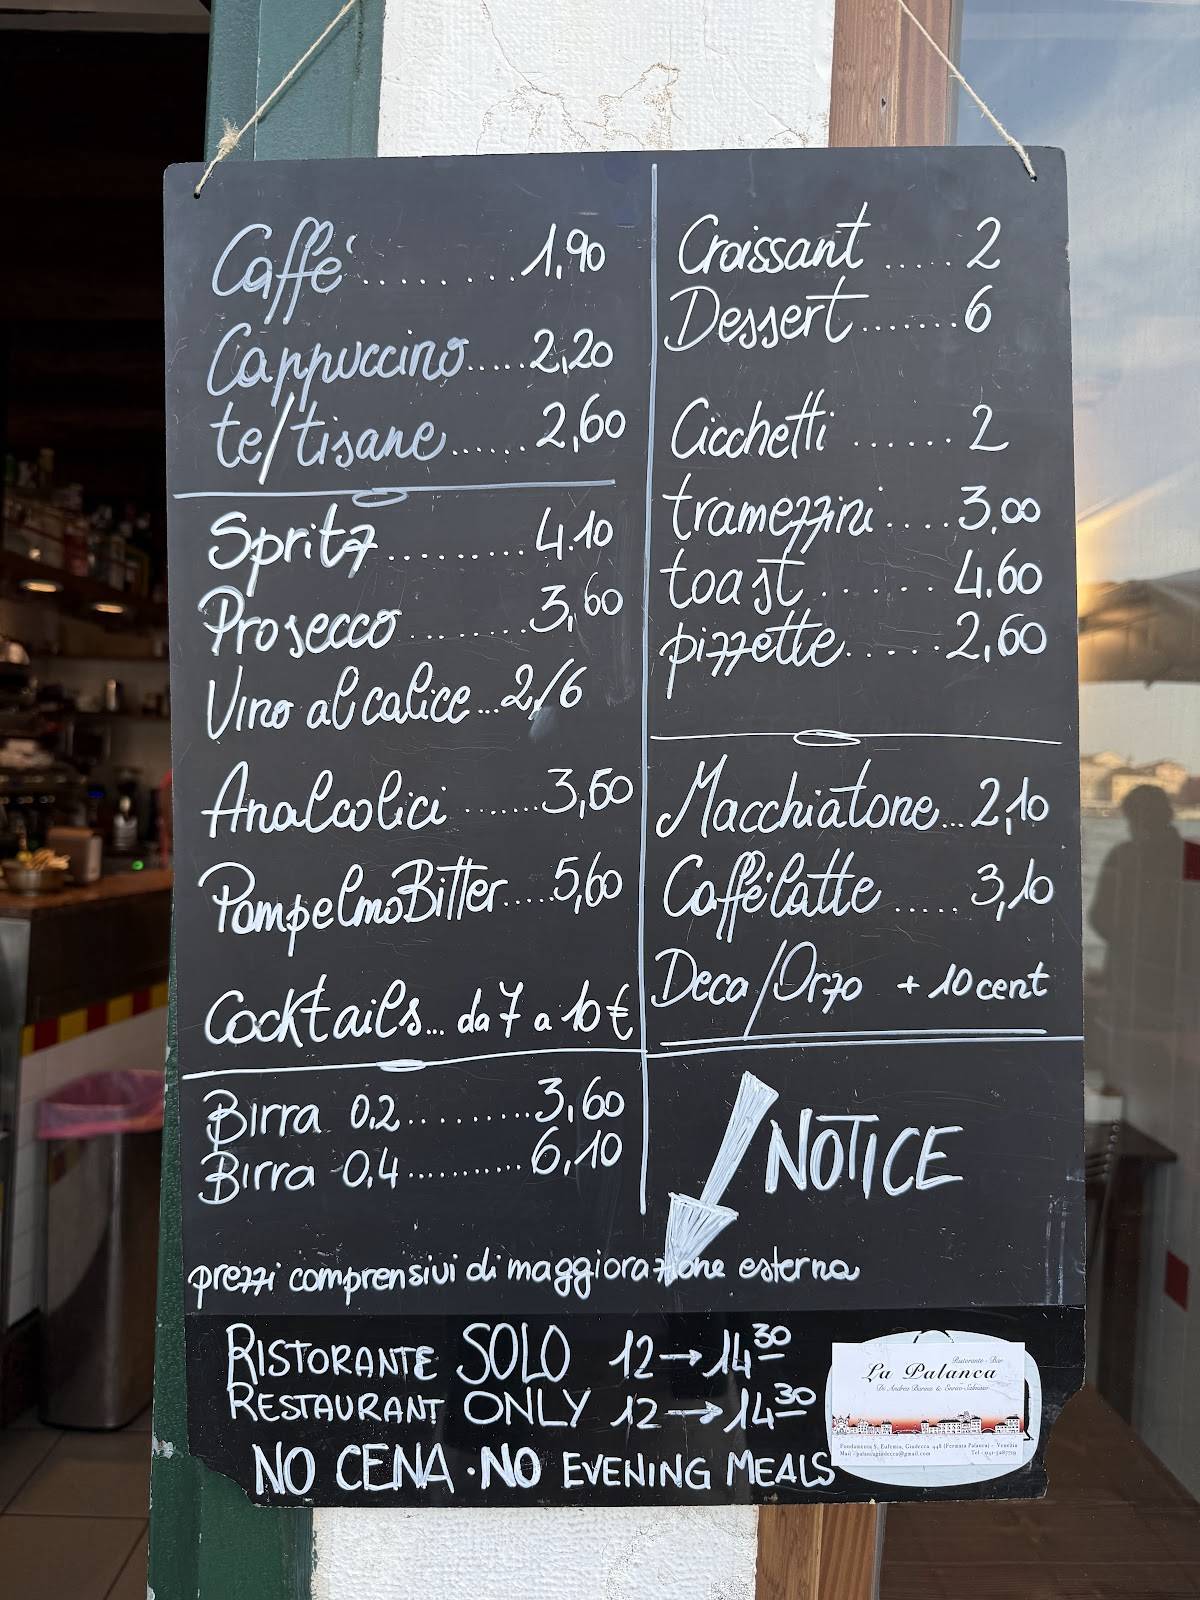 Caffé ........ 1,90
Cappuccino ..... 2,20
te/tisane ...... 2,60
Spritz ......... 4.10
Prosecco ........ 3,60
Vino al calice ... 2,/6
Analcolici ....... 3,60
Pompelmo Bitter ..... 5,60
Cocktails ... da 7 a 10 €
Birra 0,2 ......... 3,60
Birra 0,4 .......... 6,10
Croissant ..... 2
Dessert ....... 6
Cicchetti ...... 2
tramezzini .... 3,00
toast ...... 4.60
pizzette ..... 2,60
Macchiatone ... 2,10
Caffélatte ..... 3,10
Deca/Orzo + 10 cent
NOTICE
prezzi comprensivi di maggiorazione esterna
RISTORANTE SOLO 12 → 14 30
RESTAURANT ONLY 12 → 14 30
NO CENA · NO EVENING MEALS
Ristorante - Bar
La Palanca
Fondamenta S. Eufemia, Giudecca 448 (Fermata Palanca) - Venezia